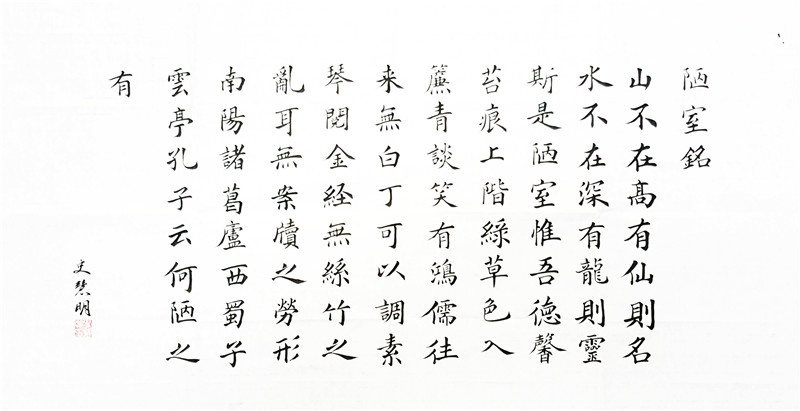 陋室銘
山不在髙有仙則名
水不在深有龍則靈
斯是陋室惟吾德馨
苔痕上階綠草色入
簾青談笑有鴻儒往
来無白丁可以調素
琴閱金経無絲竹之
亂耳無案牘之勞形
南陽諸葛廬西蜀子
雲亭孔子云何陋之
有
史慧明